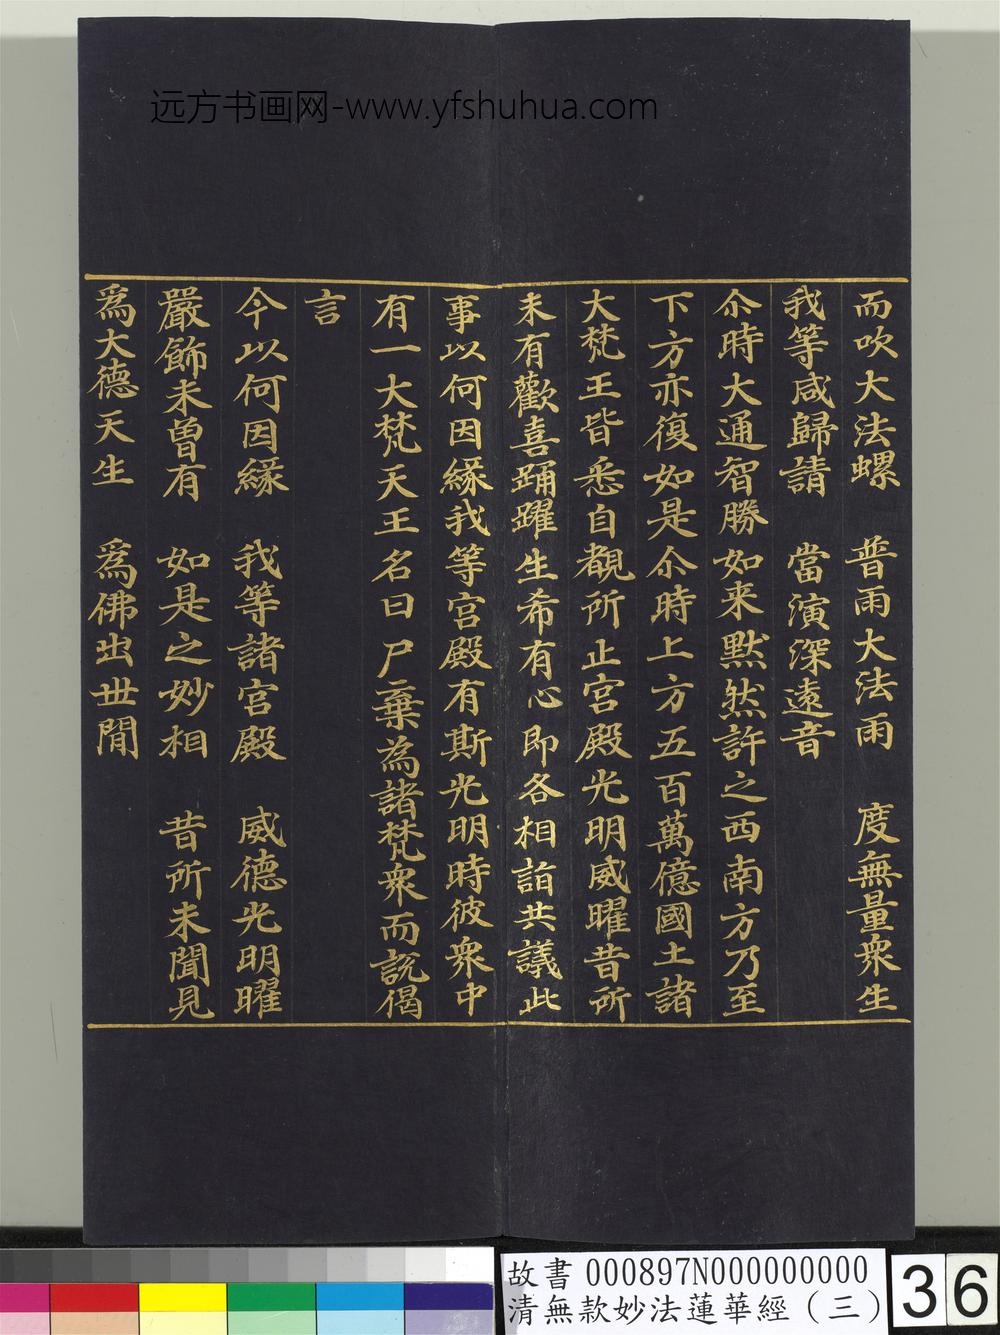 远方书画网-www.yfshuhua.com
而吹大法螺　普雨大法雨　度無量衆生
我等咸歸請　當演深遠音
尒時大通智勝如来默然許之西南方乃至
下方亦復如是尒時上方五百萬億國土諸
大梵王皆悉自覩所止宮殿光明威曜昔所
未有歡喜踊躍生希有心即各相詣共議此
事以何因緣我等宮殿有斯光明時彼衆中
有一大梵天王名曰尸棄為諸梵衆而說偈
言
今以何因緣　我等諸宮殿　威德光明曜
嚴飾未曾有　如是之妙相　昔所未聞見
爲大德天生　爲佛出世間
故書 000897N000000000
清無款妙法蓮華經（三）
36